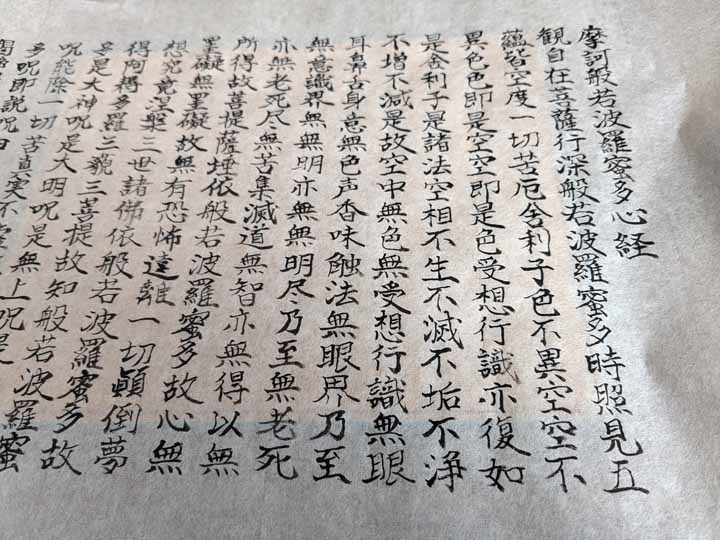 摩訶般若波羅蜜多心経
観自在菩薩行深般若波羅蜜多時照見五
蘊皆空度一切苦厄舎利子色不異空空不
異色色即是空空即是色受想行識亦復如
是舎利子是諸法空相不生不滅不垢不浄
不増不減是故空中無色無受想行識無眼
耳鼻舌身意無色声香味触法無眼界乃至
無意識界無無明亦無無明尽乃至無老死
亦無老死尽無苦集滅道無智亦無得以無
所得故菩提薩埵依般若波羅蜜多故心無
罣礙無罣礙故無有恐怖遠離一切顛倒夢
想究竟涅槃三世諸佛依般若波羅蜜多故
得阿耨多羅三藐三菩提故知般若波羅蜜
多是大神呪是大明呪是無上呪是
呪能除一切苦真実不虚
多呪即説呪曰